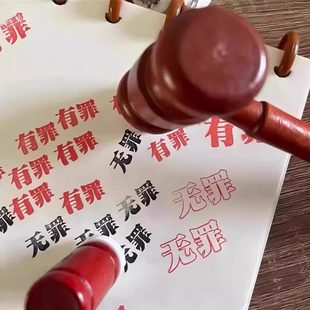 有罪
有罪
有罪
有罪
有罪
有罪
有罪
无罪
有罪
有罪
有罪
无罪
无罪
有罪
无罪
无罪
无罪
无罪